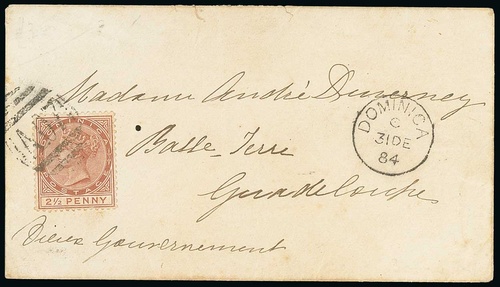 Madame André Duverney
Basse-Terre
Guadeloupe
Gouvernement
DOMINICA
C
31 DE
84
2½ PENNY